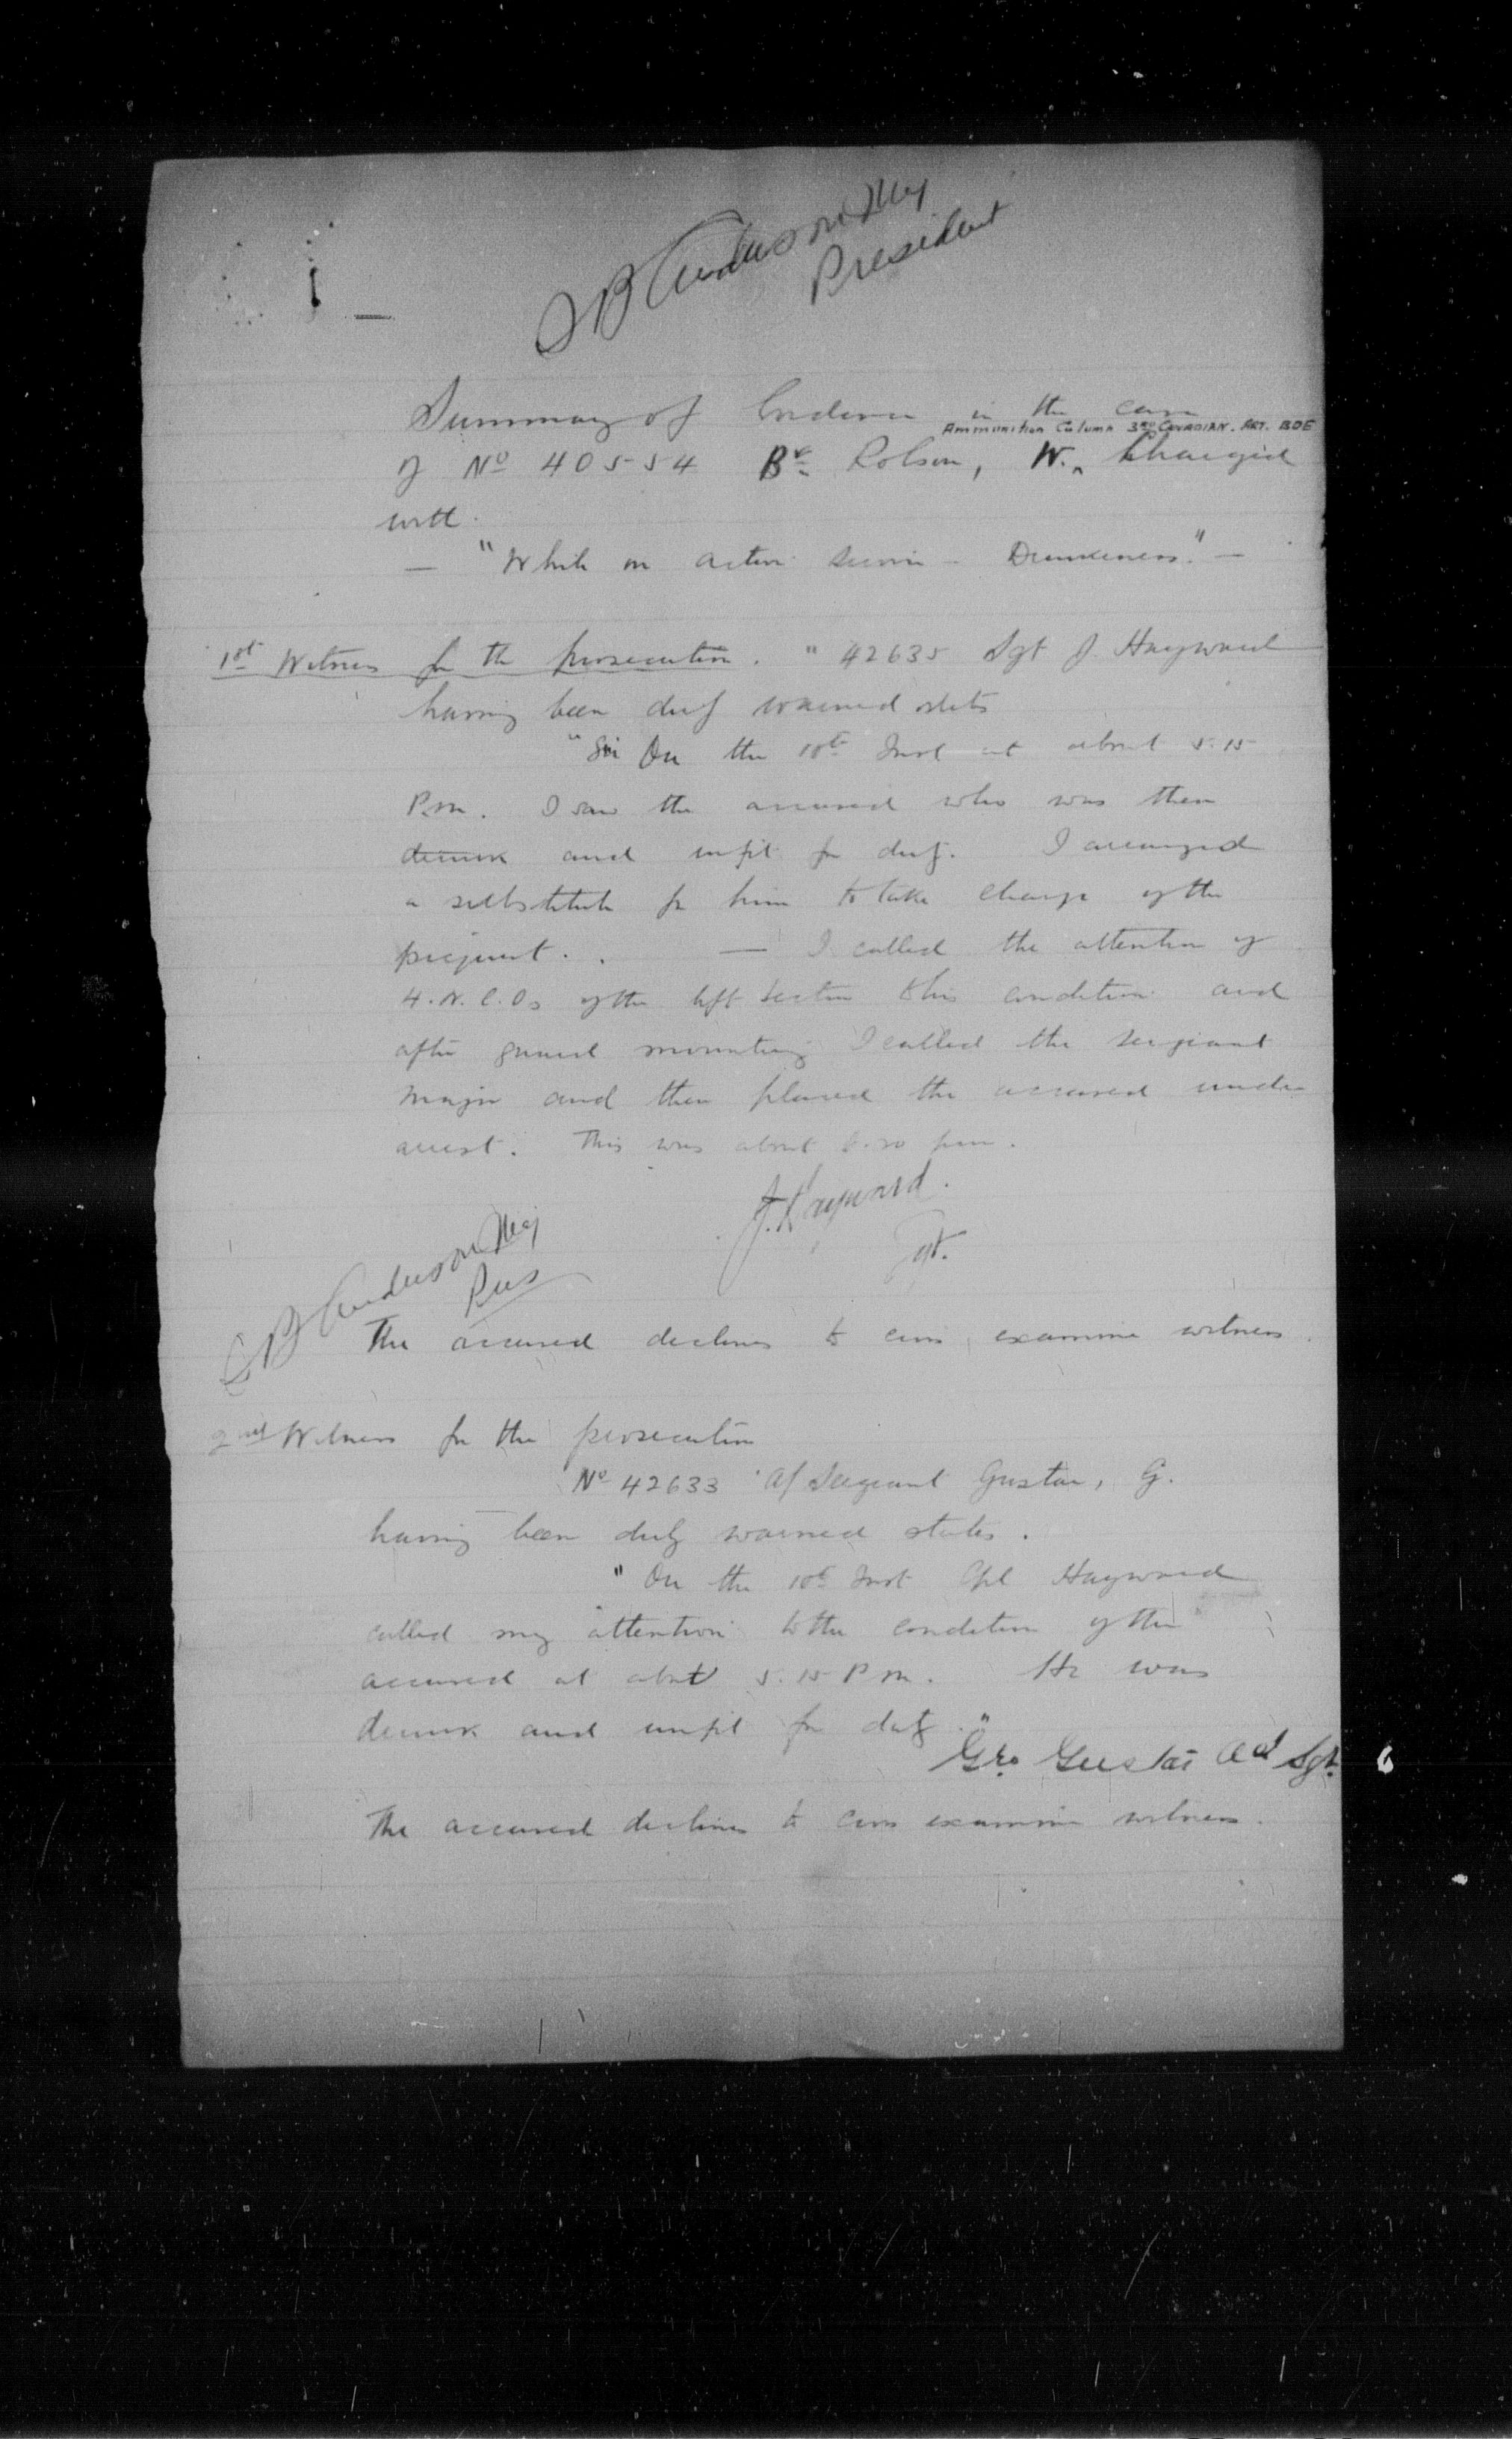 SB Anderson Maj
President
1 —
Summary of Evidence in the case
Ammunition Column 3RD CANADIAN. ART. BDE
of No 40554 Br. Robson, W. Charged
with.
— "While on active service — Drunkeness." —
1st Witness for the prosecution. " 42635 Sgt J. Hayward
having been duly warned states
"Sir On the 10th Inst at about 5.15
P.m. I saw the accused who was then
drunk and unfit for duty. I arranged
a substitute for him to take charge of the
picquet. . — I called the attention of
4. N. C. Os of the left section to his condition and
after guard mounting I called the sergeant
major and then placed the accused under
arrest. This was about pm.
J. Hayward.
Sgt.
SB Anderson Maj
Pres
The accused declines to cross examine witness.
2nd Witness for the prosecution
No 42633 A/ Sergeant Gustar, G.
having been duly warned states.
" On the 10th Inst Cpl Hayward
called my attention to the condition of the
accused at about 5.15 P m. He was
drunk and unfit for duty."
Geo Gustar Ad Sgt.
The accused declines to cross examine witness.